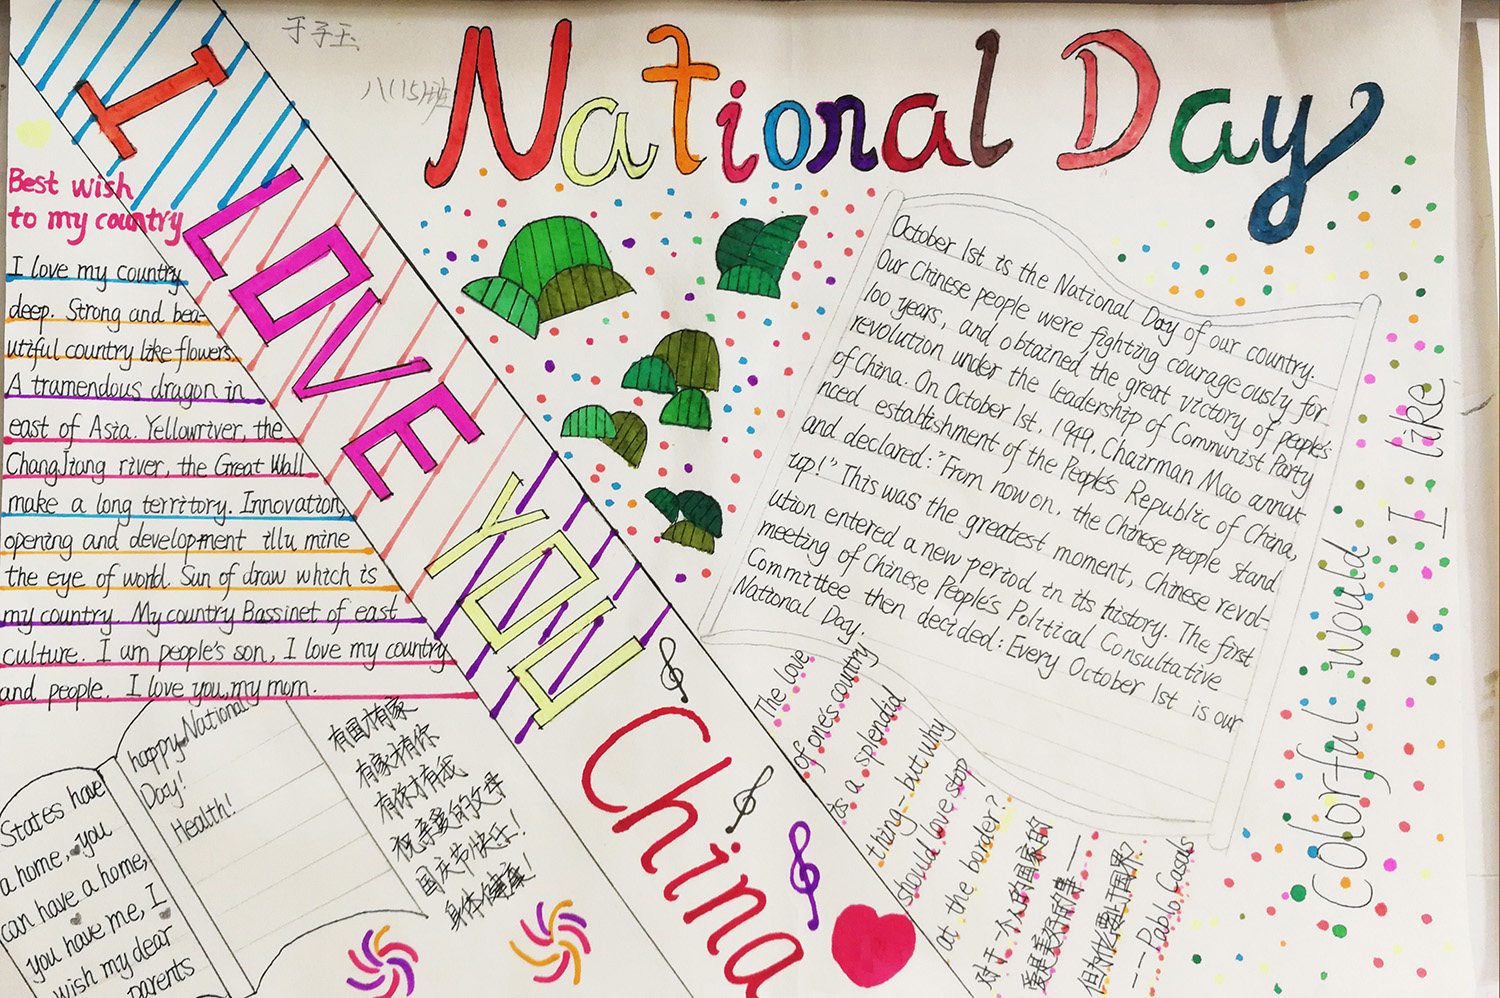 于子玉
八(15)班
National Day
I LOVE YOU China
Best wish
to my country
I love my country
deep. Strong and bea-
utiful country like flowers.
A tramendous dragon in
east of Asia. Yellowriver, the
ChangJiang river, the Great Wall
make a long territory. Innovation,
opening and development illu mine
the eye of world. Sun of draw which is
my country. My country Bassinet of east
culture. I am people's son, I love my country
and people. I love you, my mom.
October 1st is the National Day of our country.
Our Chinese people were fighting courageously for
100 years, and obtained the great victory of people's
revolution under the leadership of Communist Party
of China. On October 1st, 1949, Chairman Mao annou
nced establishment of the People's Republic of China,
and declared: "From now on, the Chinese people stand
up!" This was the greatest moment, Chinese revol-
ution entered a new period in its history. The first
meeting of Chinese People's Political Consultative
Committee then decided: Every October 1st is our
National Day.
States have
a home, you
can have a home,
you have me, I
wish my dear
parents
happy National
Day!
Health!
有国才有家
有家才有你
有你才有我
祝亲爱的父母
国庆节快乐!
身体健康!
The love
of one's country
is a splendid
thing-but why
should love stop
at the border?
对于一个人的国家的
爱是美好的事——
但为什么要止于国界?
——Pablo Casals
I like
Colorful Would